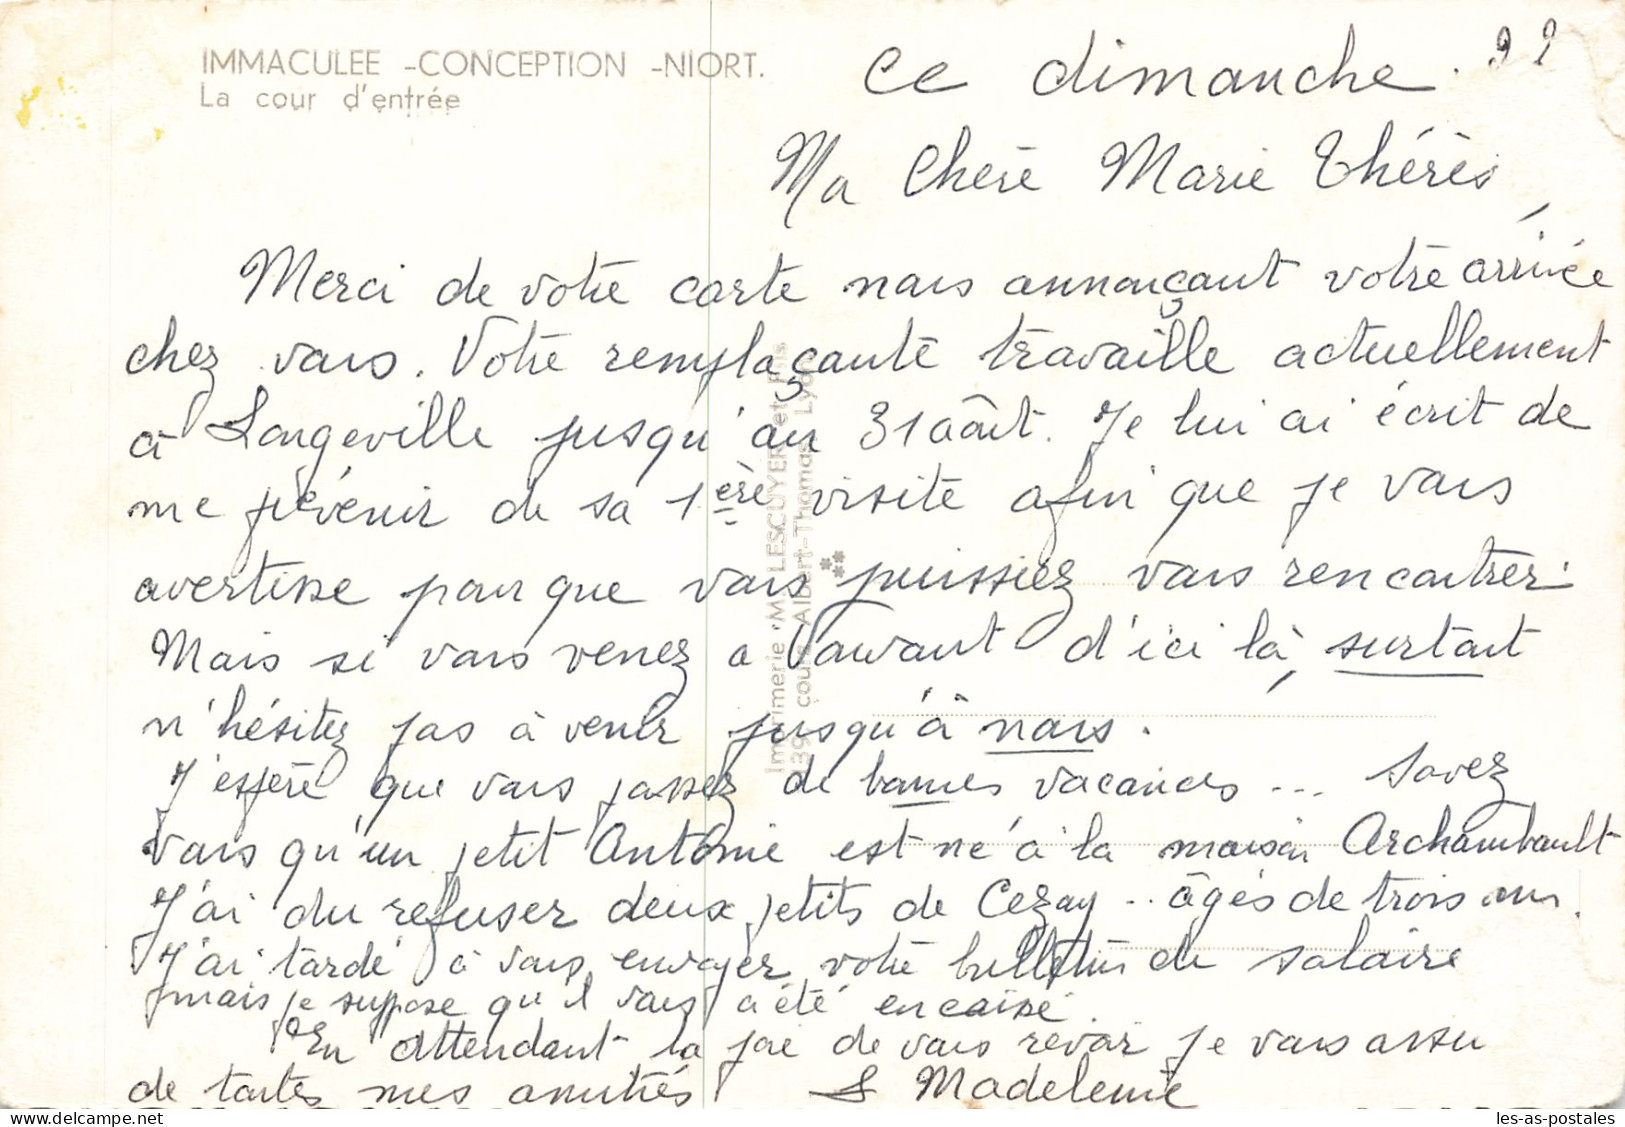 IMMACULEE -CONCEPTION -NIORT.
La cour d'entrée
ce dimanche. 22
Ma Chère Marie Thérès,
Merci de votre carte nous annonçant votre arrivée
chez vous. Votre remplaçante travaille actuellement
à Longeville jusqu'au 31 août. Je lui ai écrit de
me prévenir de sa 1ère visite afin que je vous
avertisse pour que vous puissiez vous rencontrer.
Mais si vous venez a Vouvant d'ici là, surtout
n'hésitez pas à venir jusqu'à nous.
J'espère que vous passez de bonnes vacances ... Savez
vous qu'un petit Antoine est né à la maison Archambault
J'ai du refuser deux petits de Cezay .. âgés de trois ans.
J'ai tardé à vous envoyer votre bulletin de salaire
mais je suppose qu'il vous a été encaissé.
En attendant la joie de vous revoir je vous assu
de toutes mes amitiés S Madeleine
Imprimerie M. LESCUYER et Fils
39, cours Albert-Thomas Lyon
les-as-postales